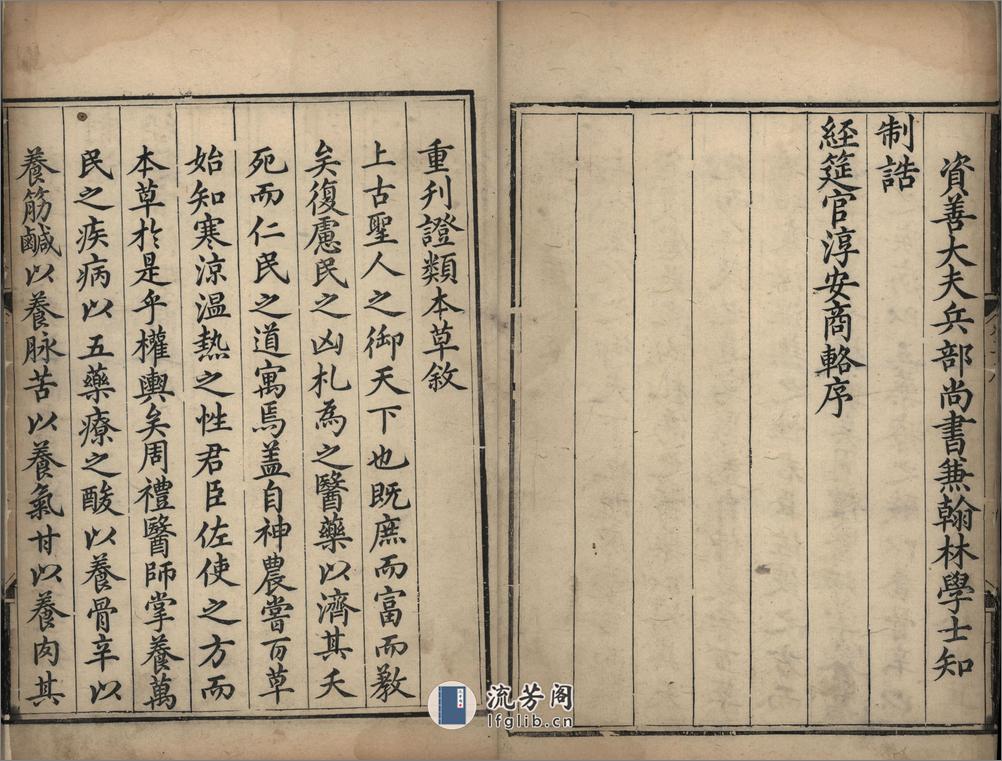 資善大夫兵部尚書兼翰林學士知
制誥
經筵官淳安商輅序
重刋證類本草敘
上古聖人之御天下也既庶而富而敎
矣復慮民之凶札為之醫藥以濟其夭
死而仁民之道寓焉盖自神農嘗百草
始知寒涼温熱之性君臣佐使之方而
本草於是乎權輿矣周禮醫師掌養萬
民之疾病以五藥療之酸以養骨辛以
養筋鹹以養脉苦以養氣甘以養肉其
流芳阁
lfglib.cn